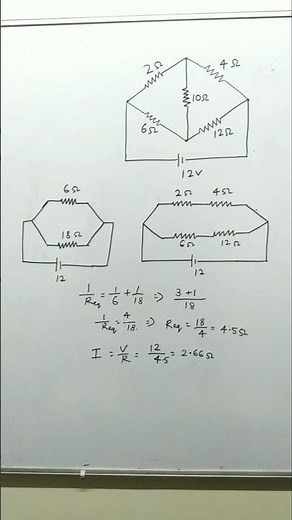 2Ω 4Ω
10Ω
6Ω 12Ω
12V
6Ω
18Ω
12
2Ω 4Ω
6Ω 12Ω
12
1/Req = 1/6 + 1/18 ⇒ 3+1/18
1/Req = 4/18 ⇒ Req = 18/4 = 4.5Ω
I = V/R = 12/4.5 = 2.66Ω